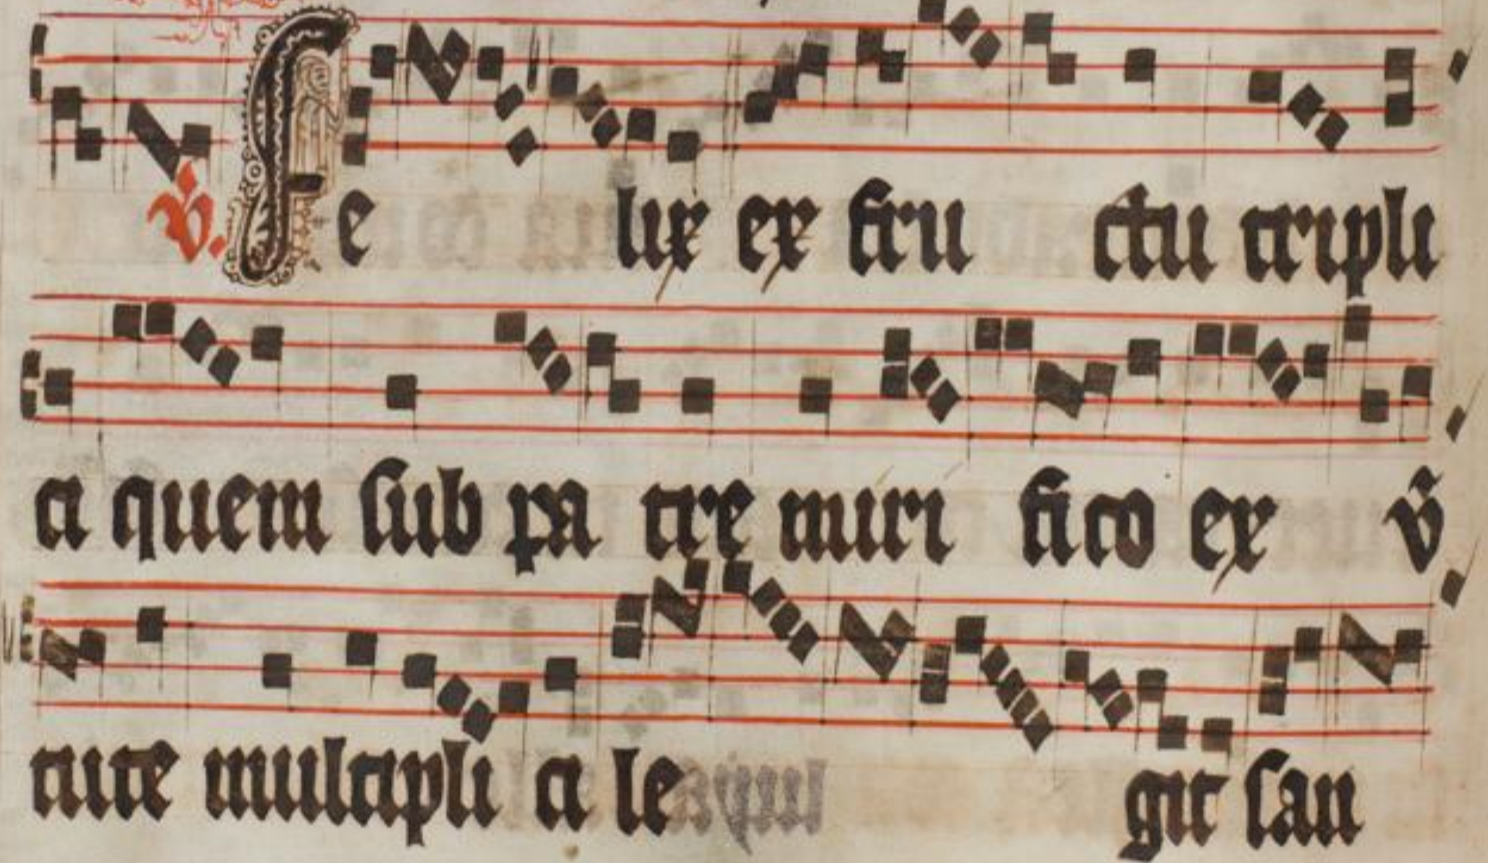 ℣. Fe lix ex fru ctu tripli
ci quem sub pa tre miri fico ex v̄
tute multipli ci le git sau